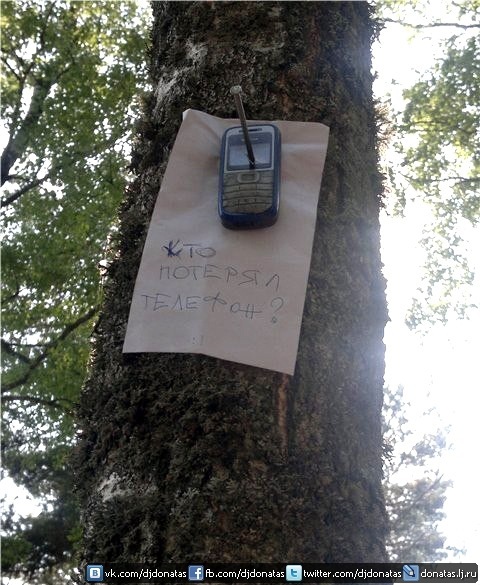 КТО
ПОТЕРЯЛ
ТЕЛЕФОН?
:)
vk.com/djdonatas fb.com/djdonatas twitter.com/djdonatas donatas.lj.ru